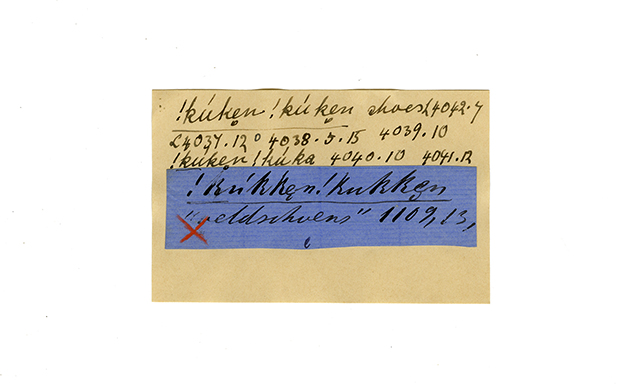 !kúken !kúken shoes L4042.7
L4037.12⁰ 4038.5.15 4039.10
!kuken !húka 4040.10 4041.12
!kúkken !kukken
"veldschoens" 1109, 13,